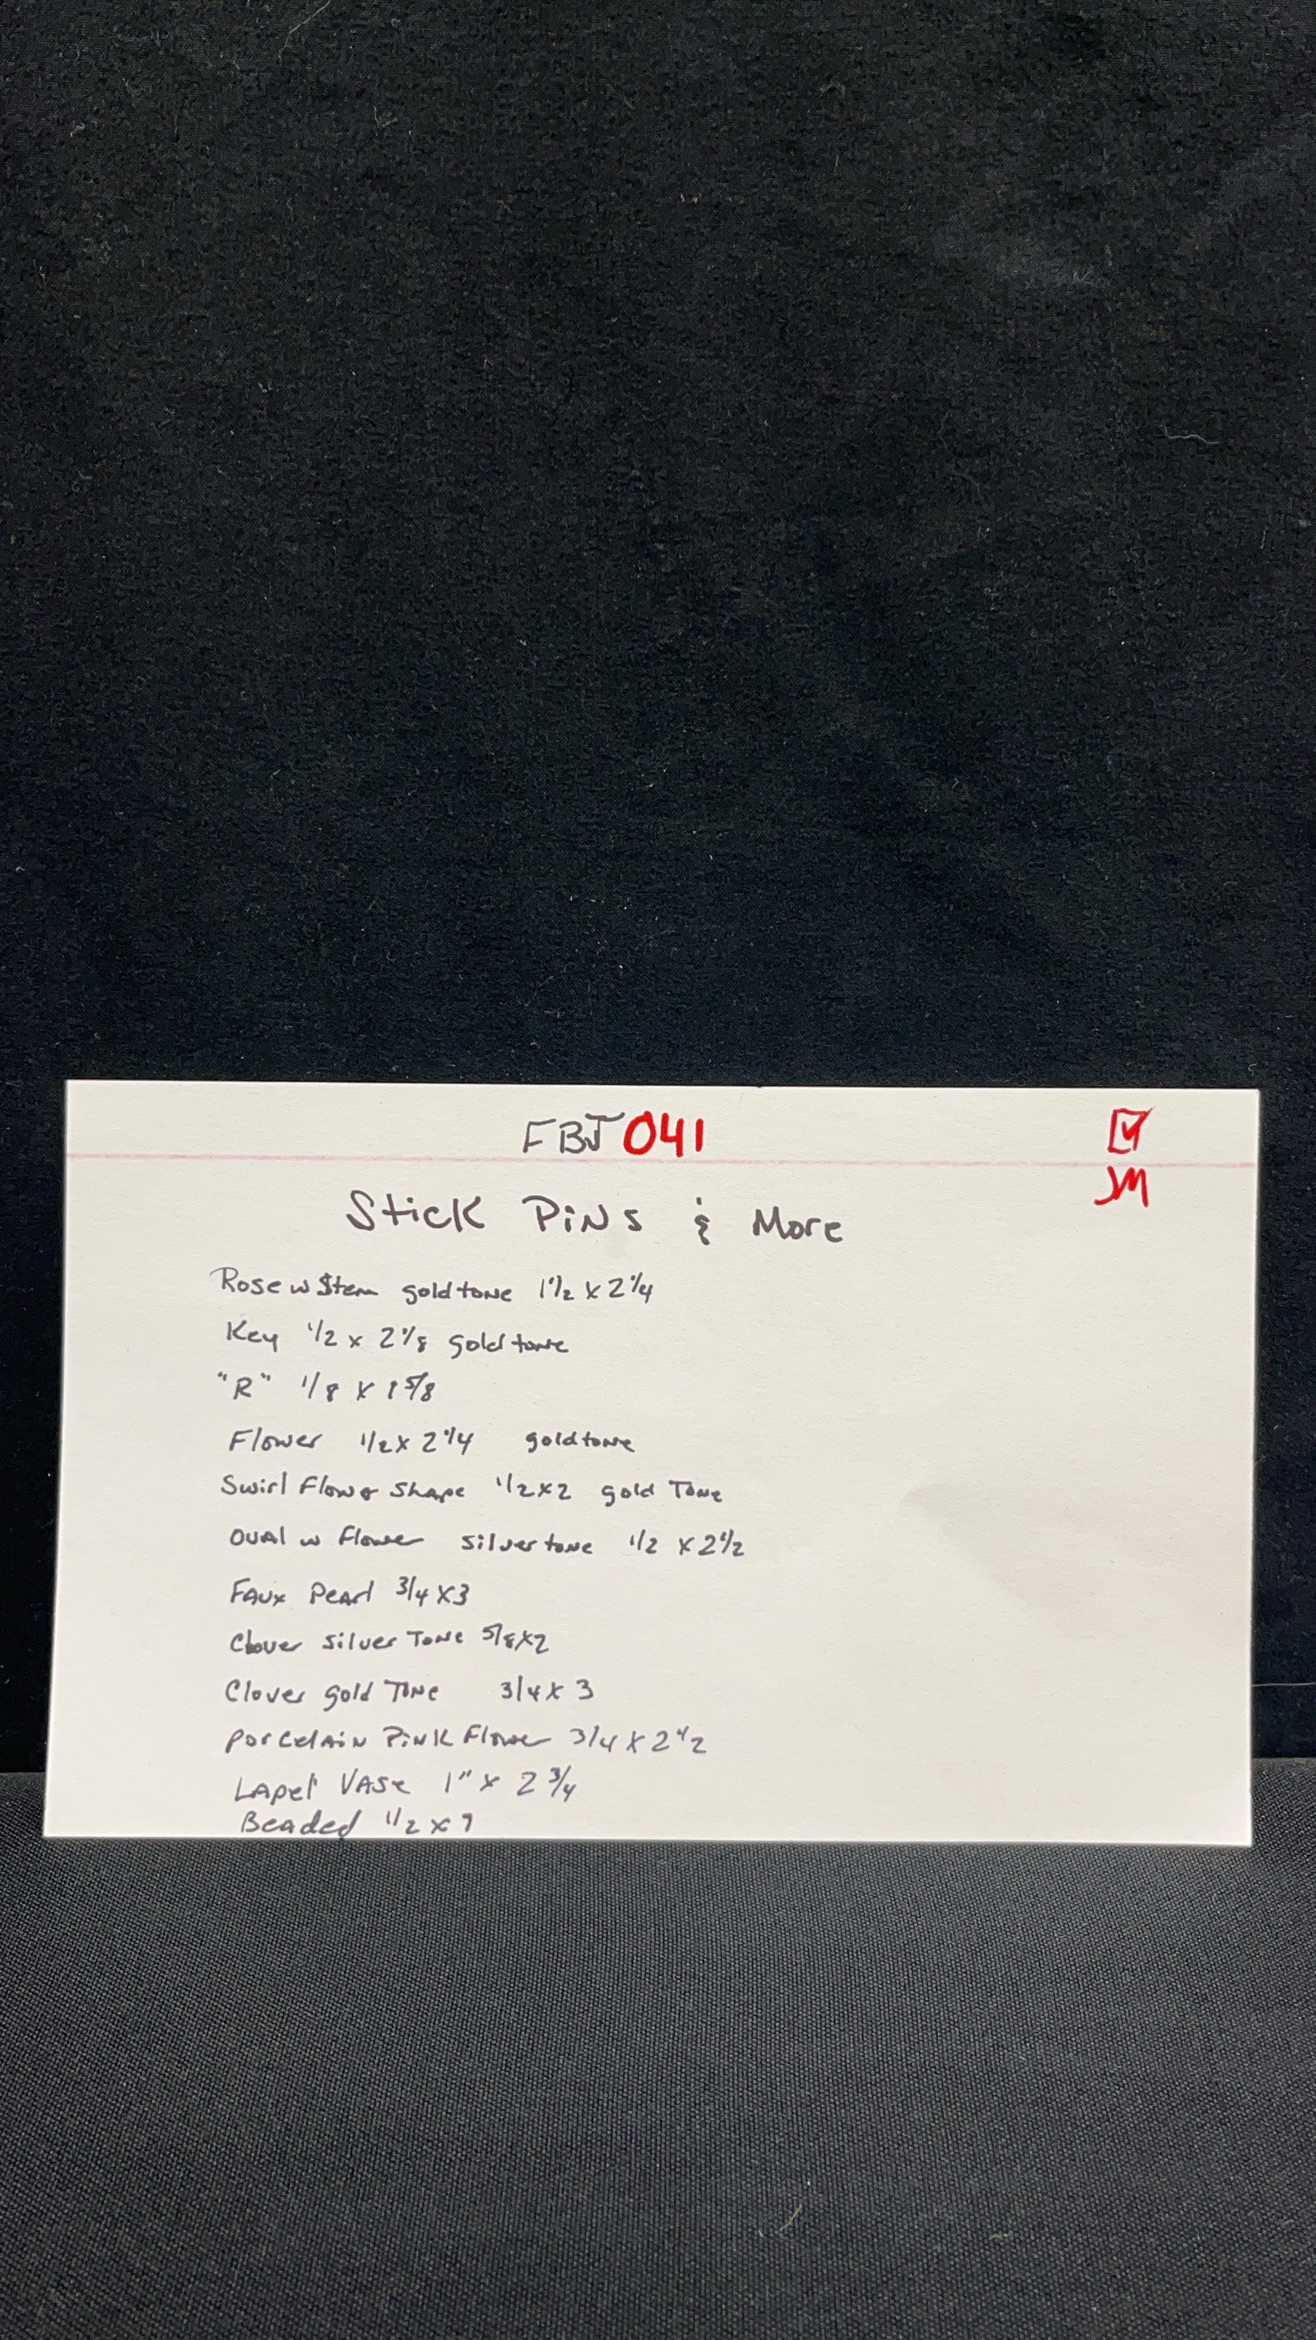 FBJ 041
JM
Stick Pins & More
Rose w Stem goldtone 1 1/2 x 2 1/4
Key 1/2 x 2 1/8 goldtone
"R" 1/8 x 1 5/8
Flower 1/2 x 2 1/4 goldtone
Swirl Flower Shape 1/2 x 2 gold Tone
Oval w flower silvertone 1/2 x 2 1/2
Faux Pearl 3/4 x 3
Clover silver Tone 5/8 x 2
Clover gold Tone 3/4 x 3
Porcelain Pink Flower 3/4 x 2 1/2
Lapel Vase 1" x 2 3/4
Beaded 1/2 x